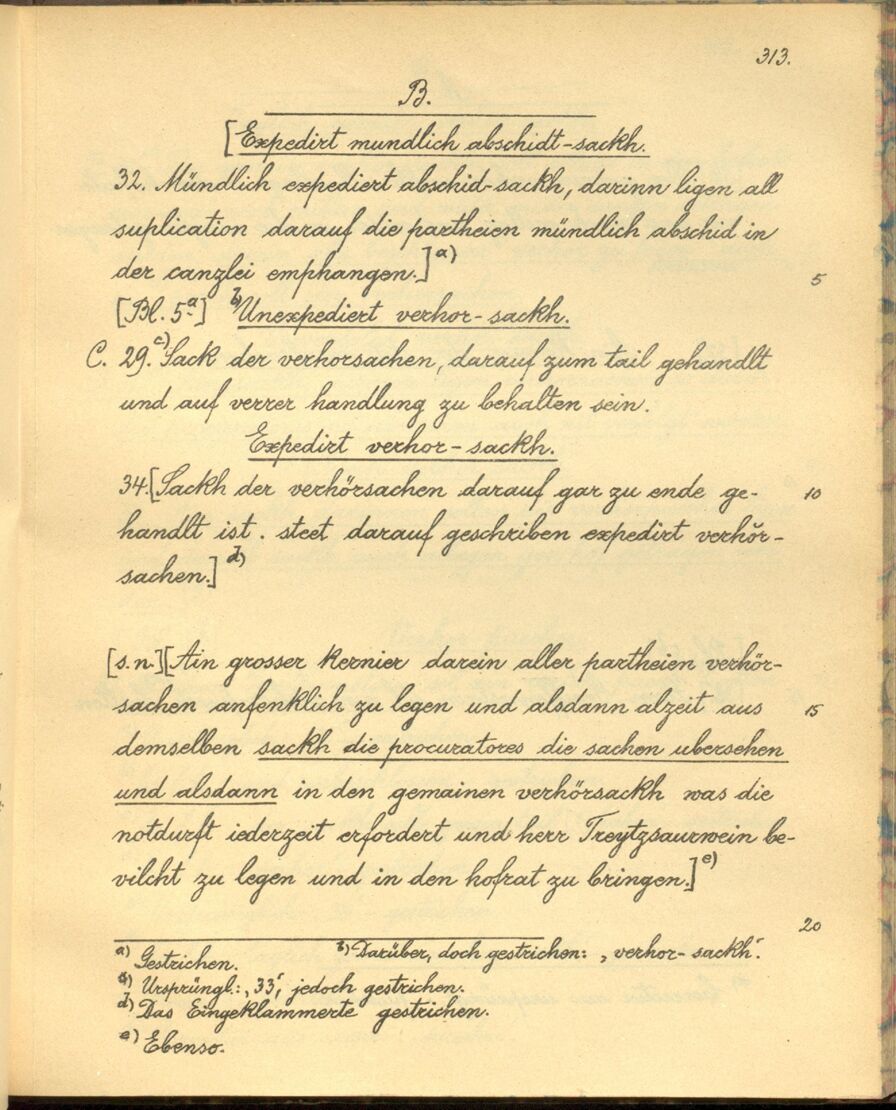 313.
B.
[Expedirt mundlich abschidt-sackh.
32. Mündlich expediert abschid-sackh, darinn ligen all
suplication darauf die partheien mündlich abschid in
der canzlei emphangen.] a)
5
[Bl. 5a] b) Unexpediert verhor-sackh.
C. 29. c) Sack der verhorsachen, darauf zum tail gehandlt
und auf verrer handlung zu behalten sein.
Expedirt verhor-sackh.
34. [Sackh der verhörsachen darauf gar zu ende ge-
10
handlt ist. steet darauf geschriben expedirt verhör-
sachen.] d)
[s.n.] [Ain grosser kernier darein aller partheien verhör-
sachen anfenklich zu legen und alsdann alzeit aus
15
demselben sackh die procuratores die sachen ubersehen
und alsdann in den gemainen verhörsackh was die
notdurft iederzeit erfordert und herr Treytzsaurwein be-
vilcht zu legen und in den hofrat zu bringen.] e)
20
a) Gestrichen. b) Darüber, doch gestrichen: ‚verhor-sackh‘.
c) Ursprüngl.: ‚33‘, jedoch gestrichen.
d) Das Eingeklammerte gestrichen.
e) Ebenso.